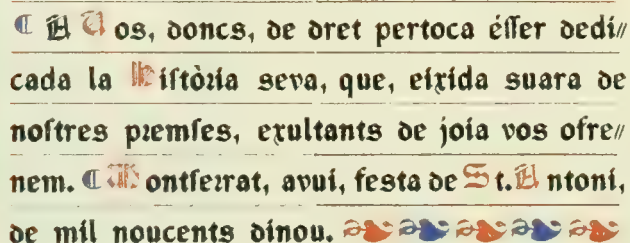 ¶ A Vos, doncs, de dret pertoca éſſer dedi//
cada la Hiſtòꝛia seva, que, eixida suara de
noſtres pꝛemſes, exultants de joia vos ofre//
nem. ¶ Montſeꝛrat, avui, festa de St. Antoni,
de mil noucents dinou.